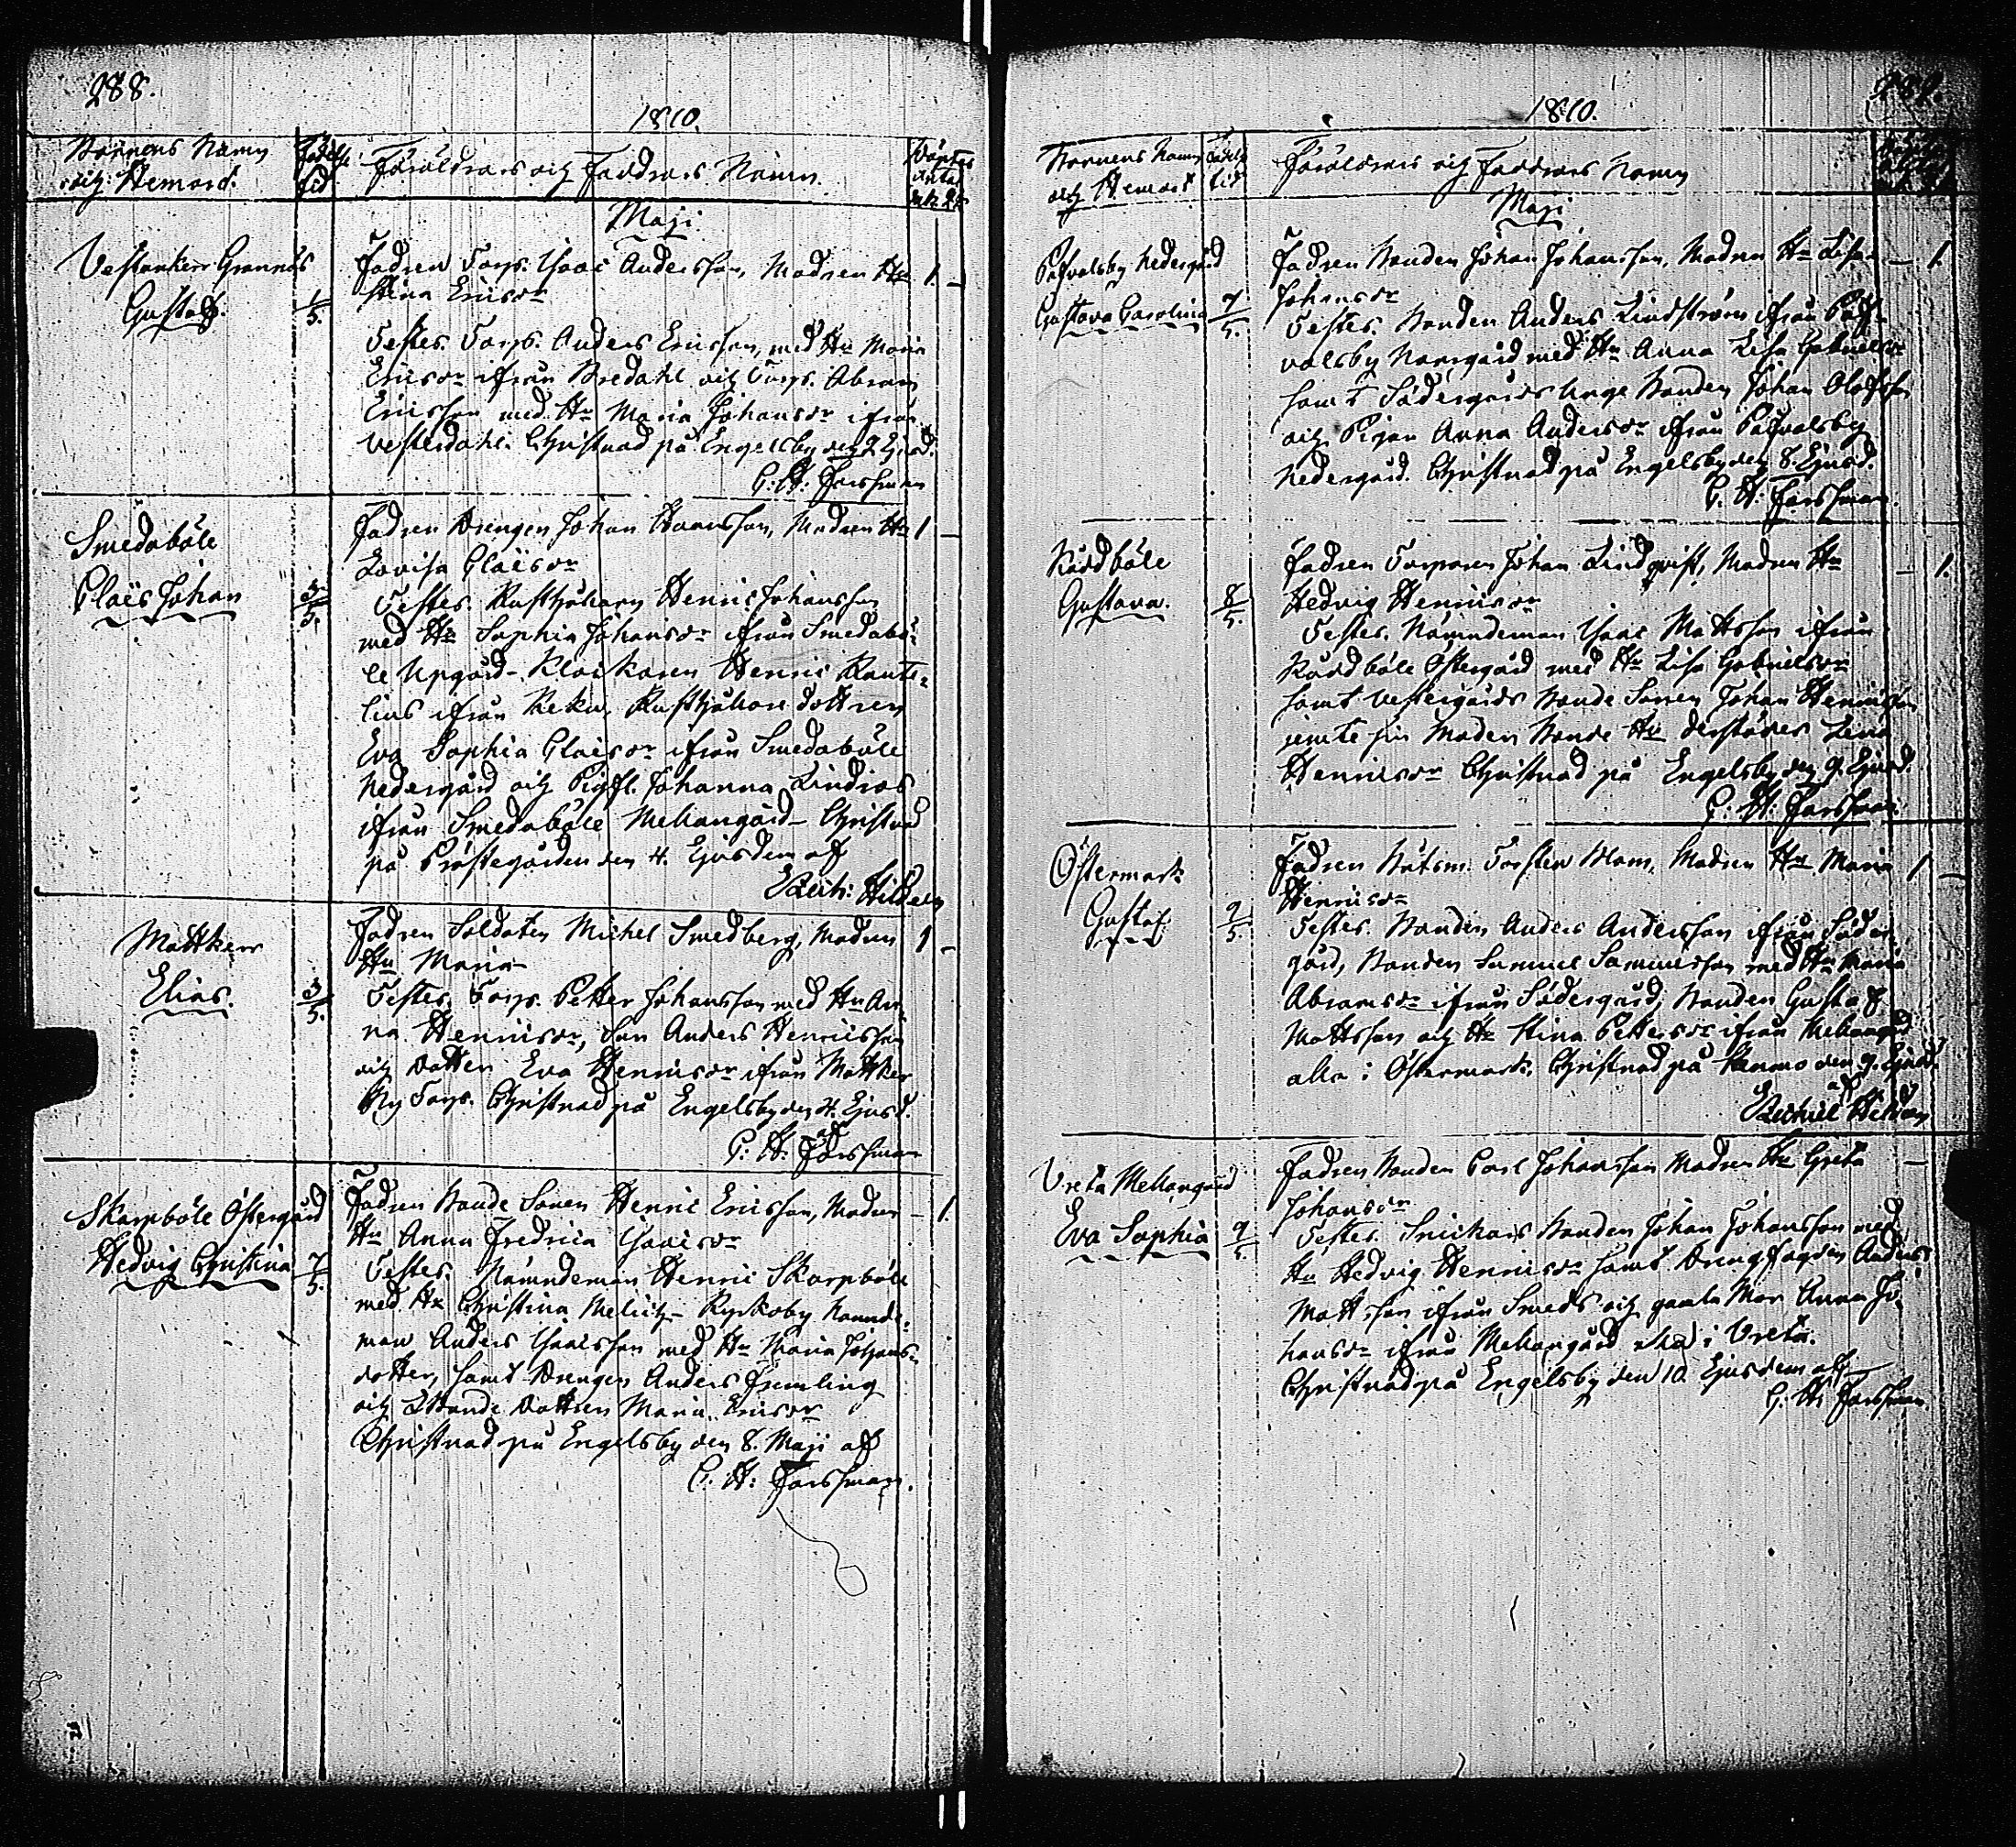 288.
1810.
Barnens Namn
och Hemort.
Födelse
tid
Föräldrars och Faddrars Namn
Maji
Vestankerr Grannäs
Gustaf.
1/5.
Fadren Torp. Isaac Andersson, Modren Hu 1 –
Stina Ericsdr
Testes. Torp. Anders Ericsson, med Hu Maria
Ericsdr ifrån Bredahl och Torp. Abram
Ericsson med Hu Maria Johansdr ifrån
Vesterdahl. Christnad på Engelsby den 2 Ejusd.
C: H: Forssman
Smedaböle
Claës Johan
3/5.
Fadren Drengen Johan Hansson, Modren Hu 1 –
Lovisa Claësdr
Testes. Rusthållaren Henric Johansson
med Hu Sophia Johansdr ifrån Smedabö-
le Upgård – Klockaren Henric Rante-
lius ifrån Reku, Rusthållare dottren
Eva Sophia Claësdr ifrån Smedaböle
Nedergård och Pigfl. Johanna Lindroos
ifrån Smedaböle Mellangård – Christnad
på Prästegården den 4. Ejusdem af
Ezech: Hildeen
Mattkerr
Elias.
3/5.
Fadren Soldaten Michel Smedberg, Modren 1 –
Hu Maria –
Testes. Torp. Petter Johansson med Hu An-
na Henricsdr, Son Anders Henricsson
och dotter Eva Henricsdr ifrån Mattker
Ny Torp. Christnad på Engelsby den 4. Ejusd.
af
C: H: Forssman
Skarpböle Östergård
Hedvig Christina
7/5.
Fadren Bonde Sonen Henric Ericsson, Modren – 1.
Hu Anna Fredrica Isacsdr
Testes. Nämndeman Henric Skarpböle
med Hu Christina Melitz – Ryskoby Nämnde-
man Anders Isacsson med Hu Maria Johans-
dotter, samt Drengen Anders Fremling
och Bonde dottren Maria Ericsdr
Christnad på Engelsby den 8. Maji af
C. H: Forssman.
289.
1810.
Barnens Namn
och Hemort
Födelse
tid
Föräldrars och Faddrars Namn
Maji
Påfvalsby Nedergård
Gustava Carolina
7/5.
Fadren Bonden Johan Johansson, Modren Hu Lisa – 1.
Johansdr
Testes. Bonden Anders Lindström ifrån Påf-
valsby Norrgård med Hu Anna Lisa Gabrielsdr
samt Södergårds unge Bonden Johan Olofsson
och Pigan Anna Andersdr ifrån Påfvalsby
Nedergård. Christnad på Engelsby den 8. Ejusd.
C. H: Forssman.
Nordböle
Gustava.
8/5.
Fadren Torparen Johan Lindqvist, Modren Hu – 1.
Hedvig Henricsdr
Testes. Nämndeman Isaac Mattsson ifrån
Nordböle Östergård med Hu Lisa Gabrielsdr
samt Vestergårds Bonde Sonen Johan Henricsson
jemte sin Moder Bonde Hu derstädes Lena
Henricsdr Christnad på Engelsby den 9. Ejusd.
C. H: Forssman.
Östermark
Gustaf
9/5.
Fadren Båtsm. Torsten Mann, Modren Hu Maria 1 –
Henricsdr
Testes. Bonden Anders Andersson ifrån Söder-
gård, Bonden Samuel Samuelsson med Hu Maria
Abramsdr ifrån Södergård, Bonden Gustaf
Mattsson och Hu Stina Pettersdr ifrån Mellangård
alla i Östermark. Christnad på den 9. Ejusd.
af
Ezechiel Hildeen
Vreta Mellangård
Eva Sophia
9/5.
Fadren Bonden Carl Johansson Modren Hu Greta –
Johansdr
Testes. Snickars Bonden Johan Johansson med
Hu Hedvig Henricsdr samt Anders
Mattsson ifrån Smeds och gamla Mor Anna Jo-
hansdr ifrån Mellangård i Vreta.
Christnad på Engelsby den 10 Ejusdem af
C: H: Forssman